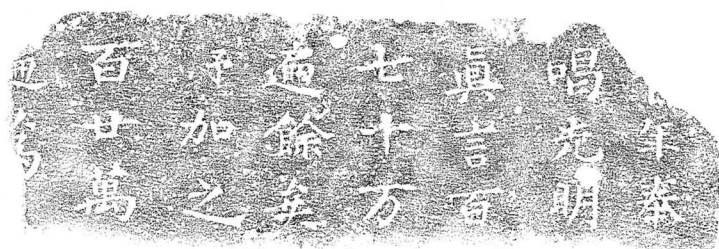 年奉
唱光明
眞言百
七十万
遍餘矣
加之
百廿萬
遍